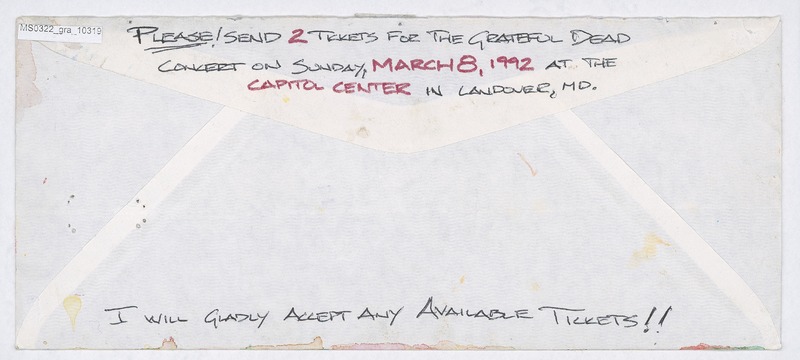 MS0322_gra_10319
PLEASE! SEND 2 TICKETS FOR THE GRATEFUL DEAD
CONCERT ON SUNDAY, MARCH 8, 1992 AT THE
CAPITOL CENTER IN LANDOVER, MD.
I WILL GLADLY ACCEPT ANY AVAILABLE TICKETS!!